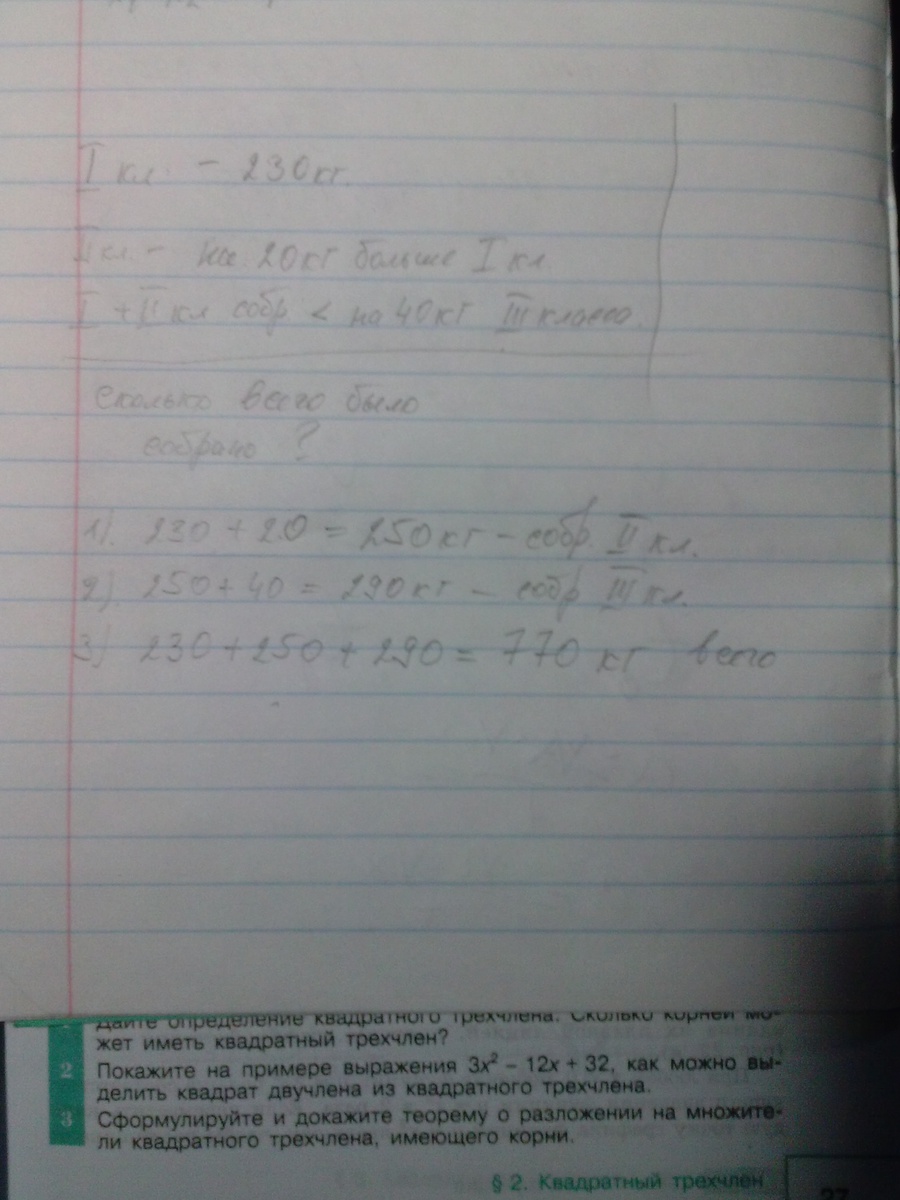 I кл. - 230 кг.
II кл. - на 20 кг больше I кл.
I + II кл собр < на 40 кг III класса.
Сколько всего было
собрано ?
1). 230 + 20 = 250 кг - собр. II кл.
2). 250 + 40 = 290 кг - собр III кл.
3) 230 + 250 + 290 = 770 кг всего
Дайте определение квадратного трёхчлена. Сколько корней мо-
жет иметь квадратный трёхчлен?
2 Покажите на примере выражения 3x² – 12x + 32, как можно вы-
делить квадрат двучлена из квадратного трёхчлена.
3 Сформулируйте и докажите теорему о разложении на множите-
ли квадратного трёхчлена, имеющего корни.
§ 2. Квадратный трёхчлен